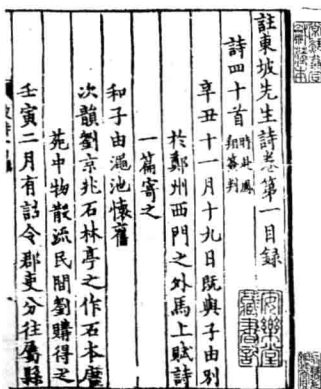 註東坡先生詩卷第一目錄
詩四十首
時赴鳳
翔簽判
辛丑十一月十九日既與子由別
於鄭州西門之外馬上賦詩
一篇寄之
和子由澠池懷舊
次韻劉京兆石林亭之作石本唐
苑中物散流民間劉購得之
壬寅二月有詔令郡吏分往屬縣